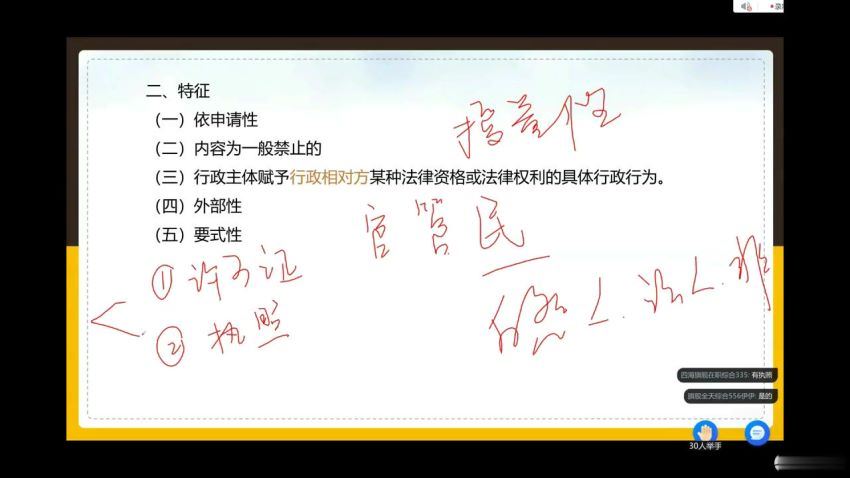 二、特征
（一）依申请性
（二）内容为一般禁止的
（三）行政主体赋予行政相对方某种法律资格或法律权利的具体行政行为。
（四）外部性
（五）要式性
官管民
①许可证
②执照
四海旗舰在职综合335: 有执照
旗舰全天综合556伊伊: 是的
30人举手